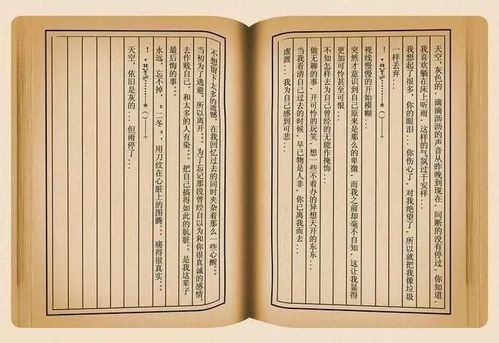 天空，灰色的，滴滴沥沥的声音从昨晚到现在，间断的没有停过，你知道，
我喜欢躺在床上听雨，这样的气氛过于安祥...
我想起了很多，你的眼泪...你伤心了，对我绝望了，所以就把我像垃圾
一样丢弃...
视线慢慢的开始模糊...
突然才意识到自己原来是那么的卑微，而我之前却毫不自知，这让我显得
更加可怜甚至可恨...
不知怎样去为自己曾经的无能作掩饰...
做无聊的事，开可怜的玩笑，想一些不着办的异想天开的东东...
当我看清自己过去的时候，早己物是人非，你已离我而去...
虚渡...我为自己感到可悲...
不想留下太多的遗憾，在我回忆过去的同时夹杂着那么一些心酸...
当初为了逃避，所以离开...为了忘记那段曾经自以为和你很真诚的感情，
去作贱自己，和太多的人有染...把自己搞得如此的肮脏...是我这辈子
最后悔的事...
永远，忘不掉，“二冬”，用刀纹在心脏上的图腾...痛得很真实...
天空，依旧是灰的...但雨停了...